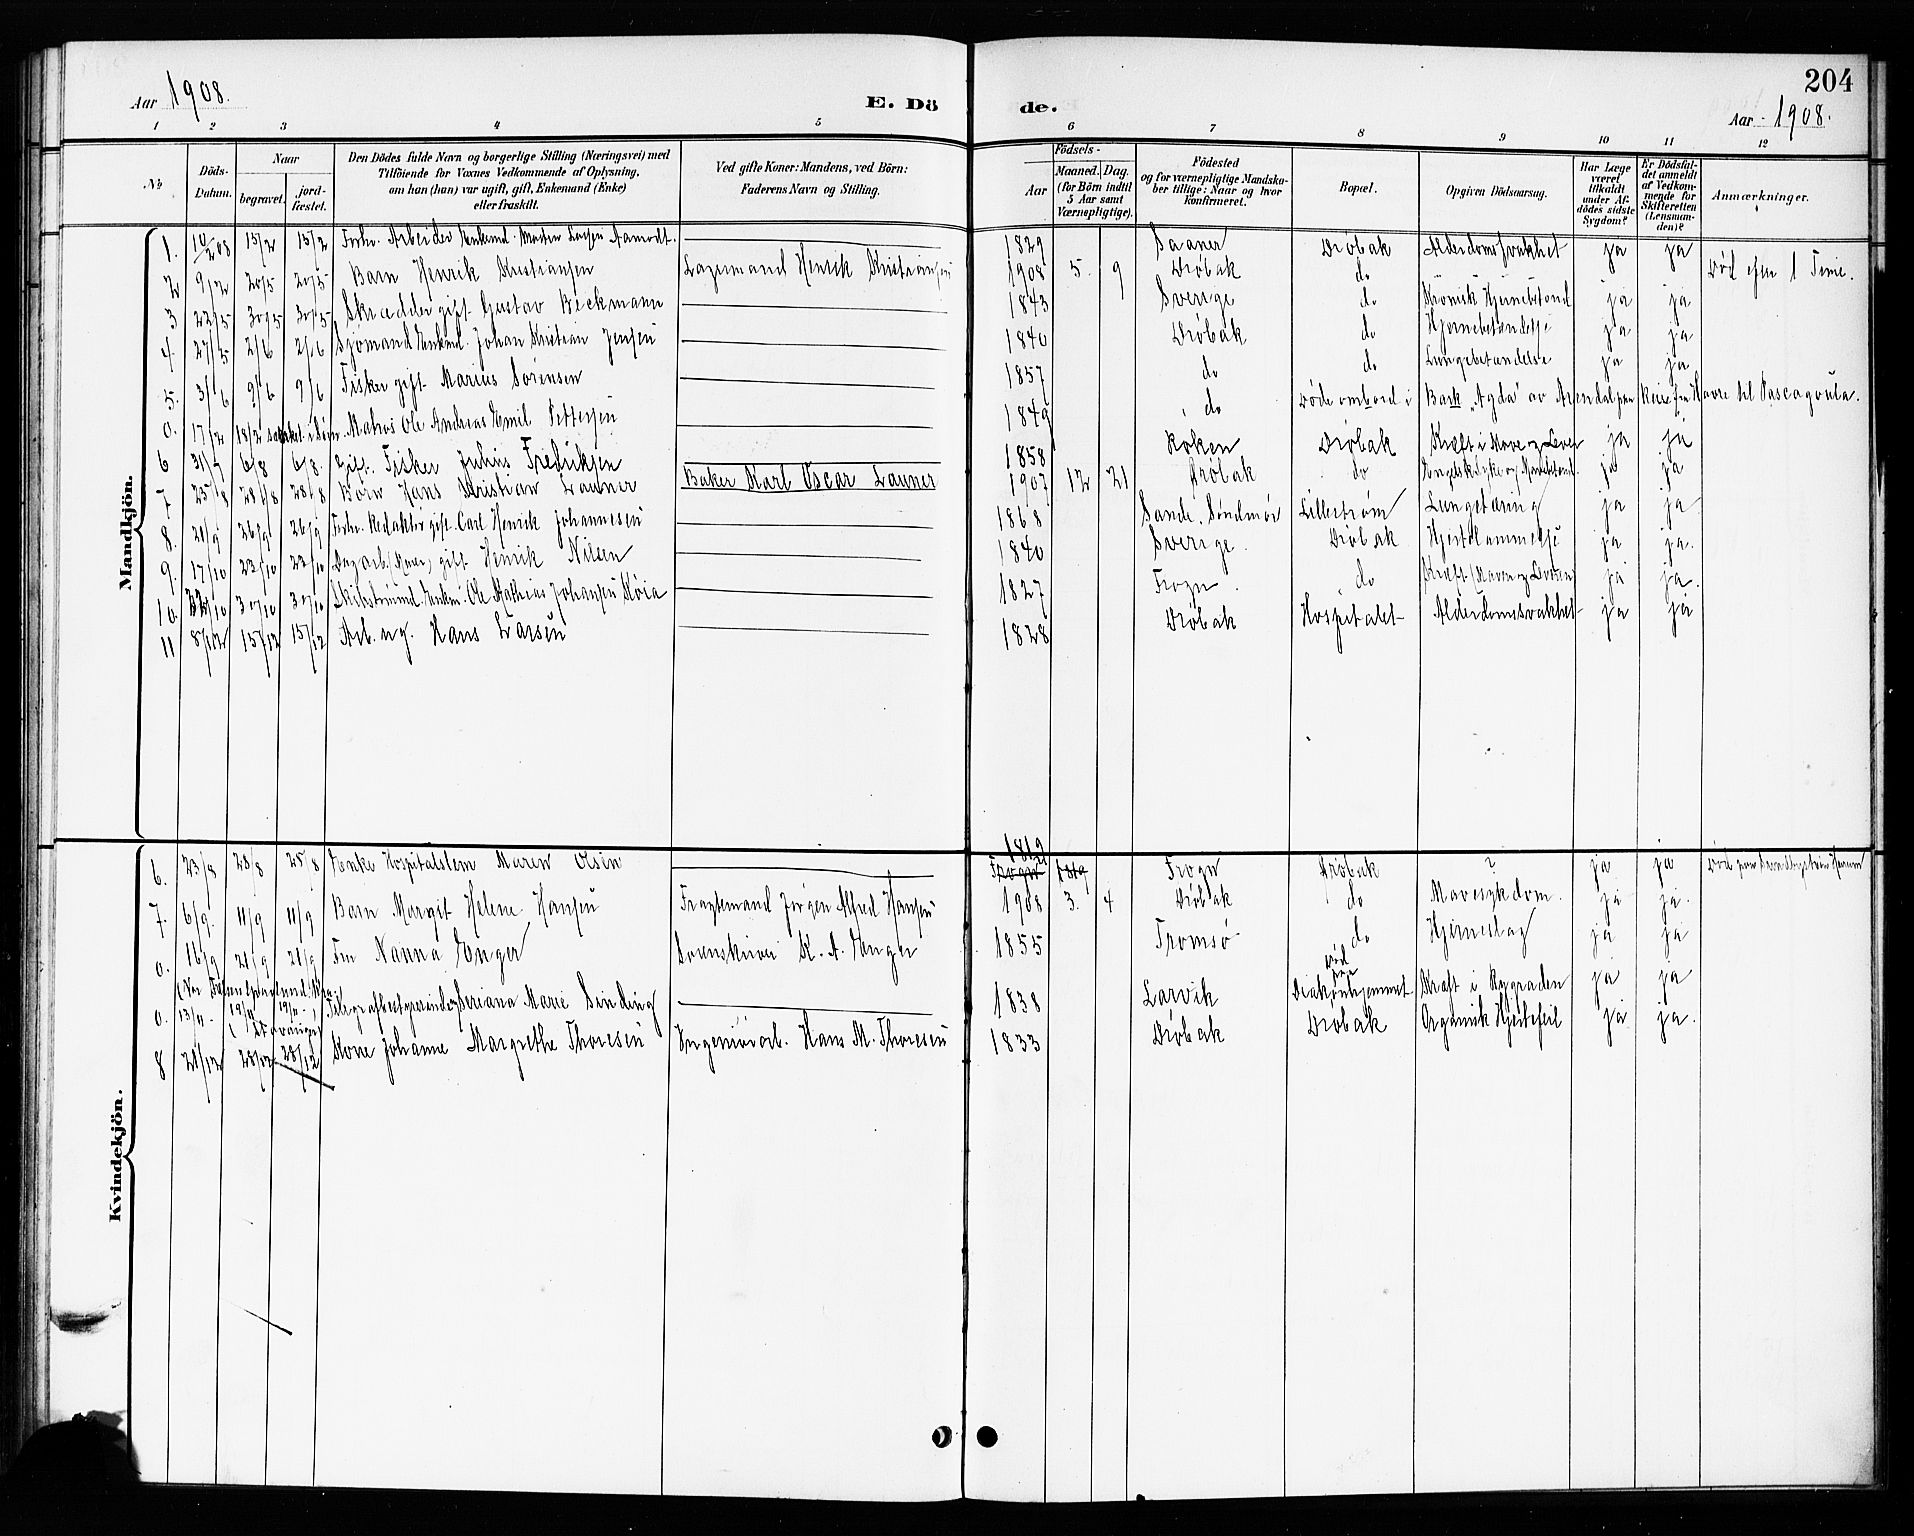 204
Aar 1908.
E. Dö
de.
Aar 1908.
1 2 3 4 5 6 7 8 9 10 11 12
No.
Döds-Datum.
Naar
begravet.
jord-fæstet.
Den Dödes fulde Navn og borgerlige Stilling (Næringsvei) med
Tilföiende for Voxnes Vedkommende af Oplysning,
om han (hun) var ugift, gift, Enkemand (Enke)
eller fraskilt.
Ved gifte Koner: Mandens, ved Börn:
Faderens Navn og Stilling.
Födsels-
Aar
Maaned. Dag.
(for Börn indtil
5 Aar samt
Værnepligtige).
Födested
og for værnepligtige Mandska-
ber tillige: Naar og hvor
konfirmeret.
Bopæl.
Opgiven Dödsaarsag.
Har Læge
været
tilkaldt
under Af-
dödes sidste
Sygdom?
Er Dödsfal-
det anmeldt
af Vedkom-
mende for
Skifteretten
(Lensman-
den)?
Anmærkninger.
Mandkjön.
1. 10/2 08 15/2 15/2 Forhv. Arbeider Enkemd. Morten Larsen Aamodt. 1829 Saaner Drøbak Alderdomssvakhet ja ja
2 9/ 20/5 20/5 Barn Henrik Kristiansen Henrik Kristiansen 1908 5. 9 Drøbak do Død efter 1 Time.
3 22/5 30/5 30/5 Skrædder gift. Gustav Beckmann 1843 Sverige do Kronisk ja ja
4. 27/5 2/6 2/6 Sjømand Enkmd. Johan Kristian Jensen 1840 Drøbak do Hjernebetændelse ja ja
5. 3/6 9/6 9/6 Fisker gift. Marius Sørensen 1857 do do Lungebetændelse ja ja
0. 17/2 18/2 Matros Ole Andreas Emil Pettersen 1849 do Døde ombord i Bark "Agda" av Arendal paa Reise fra Havre til Pascagoula.
6 31/7 6/8 6/8. Gift. Fisker Julius Fredriksen 1858 Røken Drøbak Kræft i Mave og Lever ja ja
7 25/8 28/8 28/8 Børn Hans Kristian Launer Baker Karl Oscar Launer 1907 12 21 Drøbak do Engelsk Syke og ja ja
8. 21/9 26/9 26/9 Forhv. Redaktør gift. Carl Henrik Johannesen 1868 Sande. Søndmør Lillestrøm Lungetæring ja ja
9. 17/10 22/10 22/10 gift. Henrik Nilsen 1840 Sverige. Drøbak Hjertelammelse ja ja.
10. /10 30/10 30/10 Enkm. Ole Mathias Johansen Røia 1827 Frogn. do Kræft (Maven og Leveren) ja ja.
11 8/12 15/12 15/12 Arb. ug. Hans Larsen 1828 Drøbak Hospitalet Alderdomssvakhet ja ja
Kvindekjön.
6. 23/8 28/8 28/8 Enke Hospitalslem Maren Olsen 1819 Frogn Drøbak ? ja ja
7. 6/9. 11/9 11/9 Barn Margit Helene Hansen Fragtemand Jørgen Alfred Hansen 1908 3. 4 Drøbak do Mavesykdom. ja ja.
0. 16/9 21/9 21/9 Fru Nanna Enger K. A. Enger 1855 Tromsø do Hjerneslag ja ja
0. 13/11 19/11 19/11 Telegrafbestyrerinde Seriana Marie Sinding 1838 Larvik Død paa Diakonhjemmet Kræft i Rygraden ja ja
(Stavanger)
8 21/12 28/12 28/12 Kone Johanne Margrethe Thoresen Ingeniørarb. Hans M. Thoresen 1833 Drøbak Drøbak Organisk Hjertefeil ja ja.